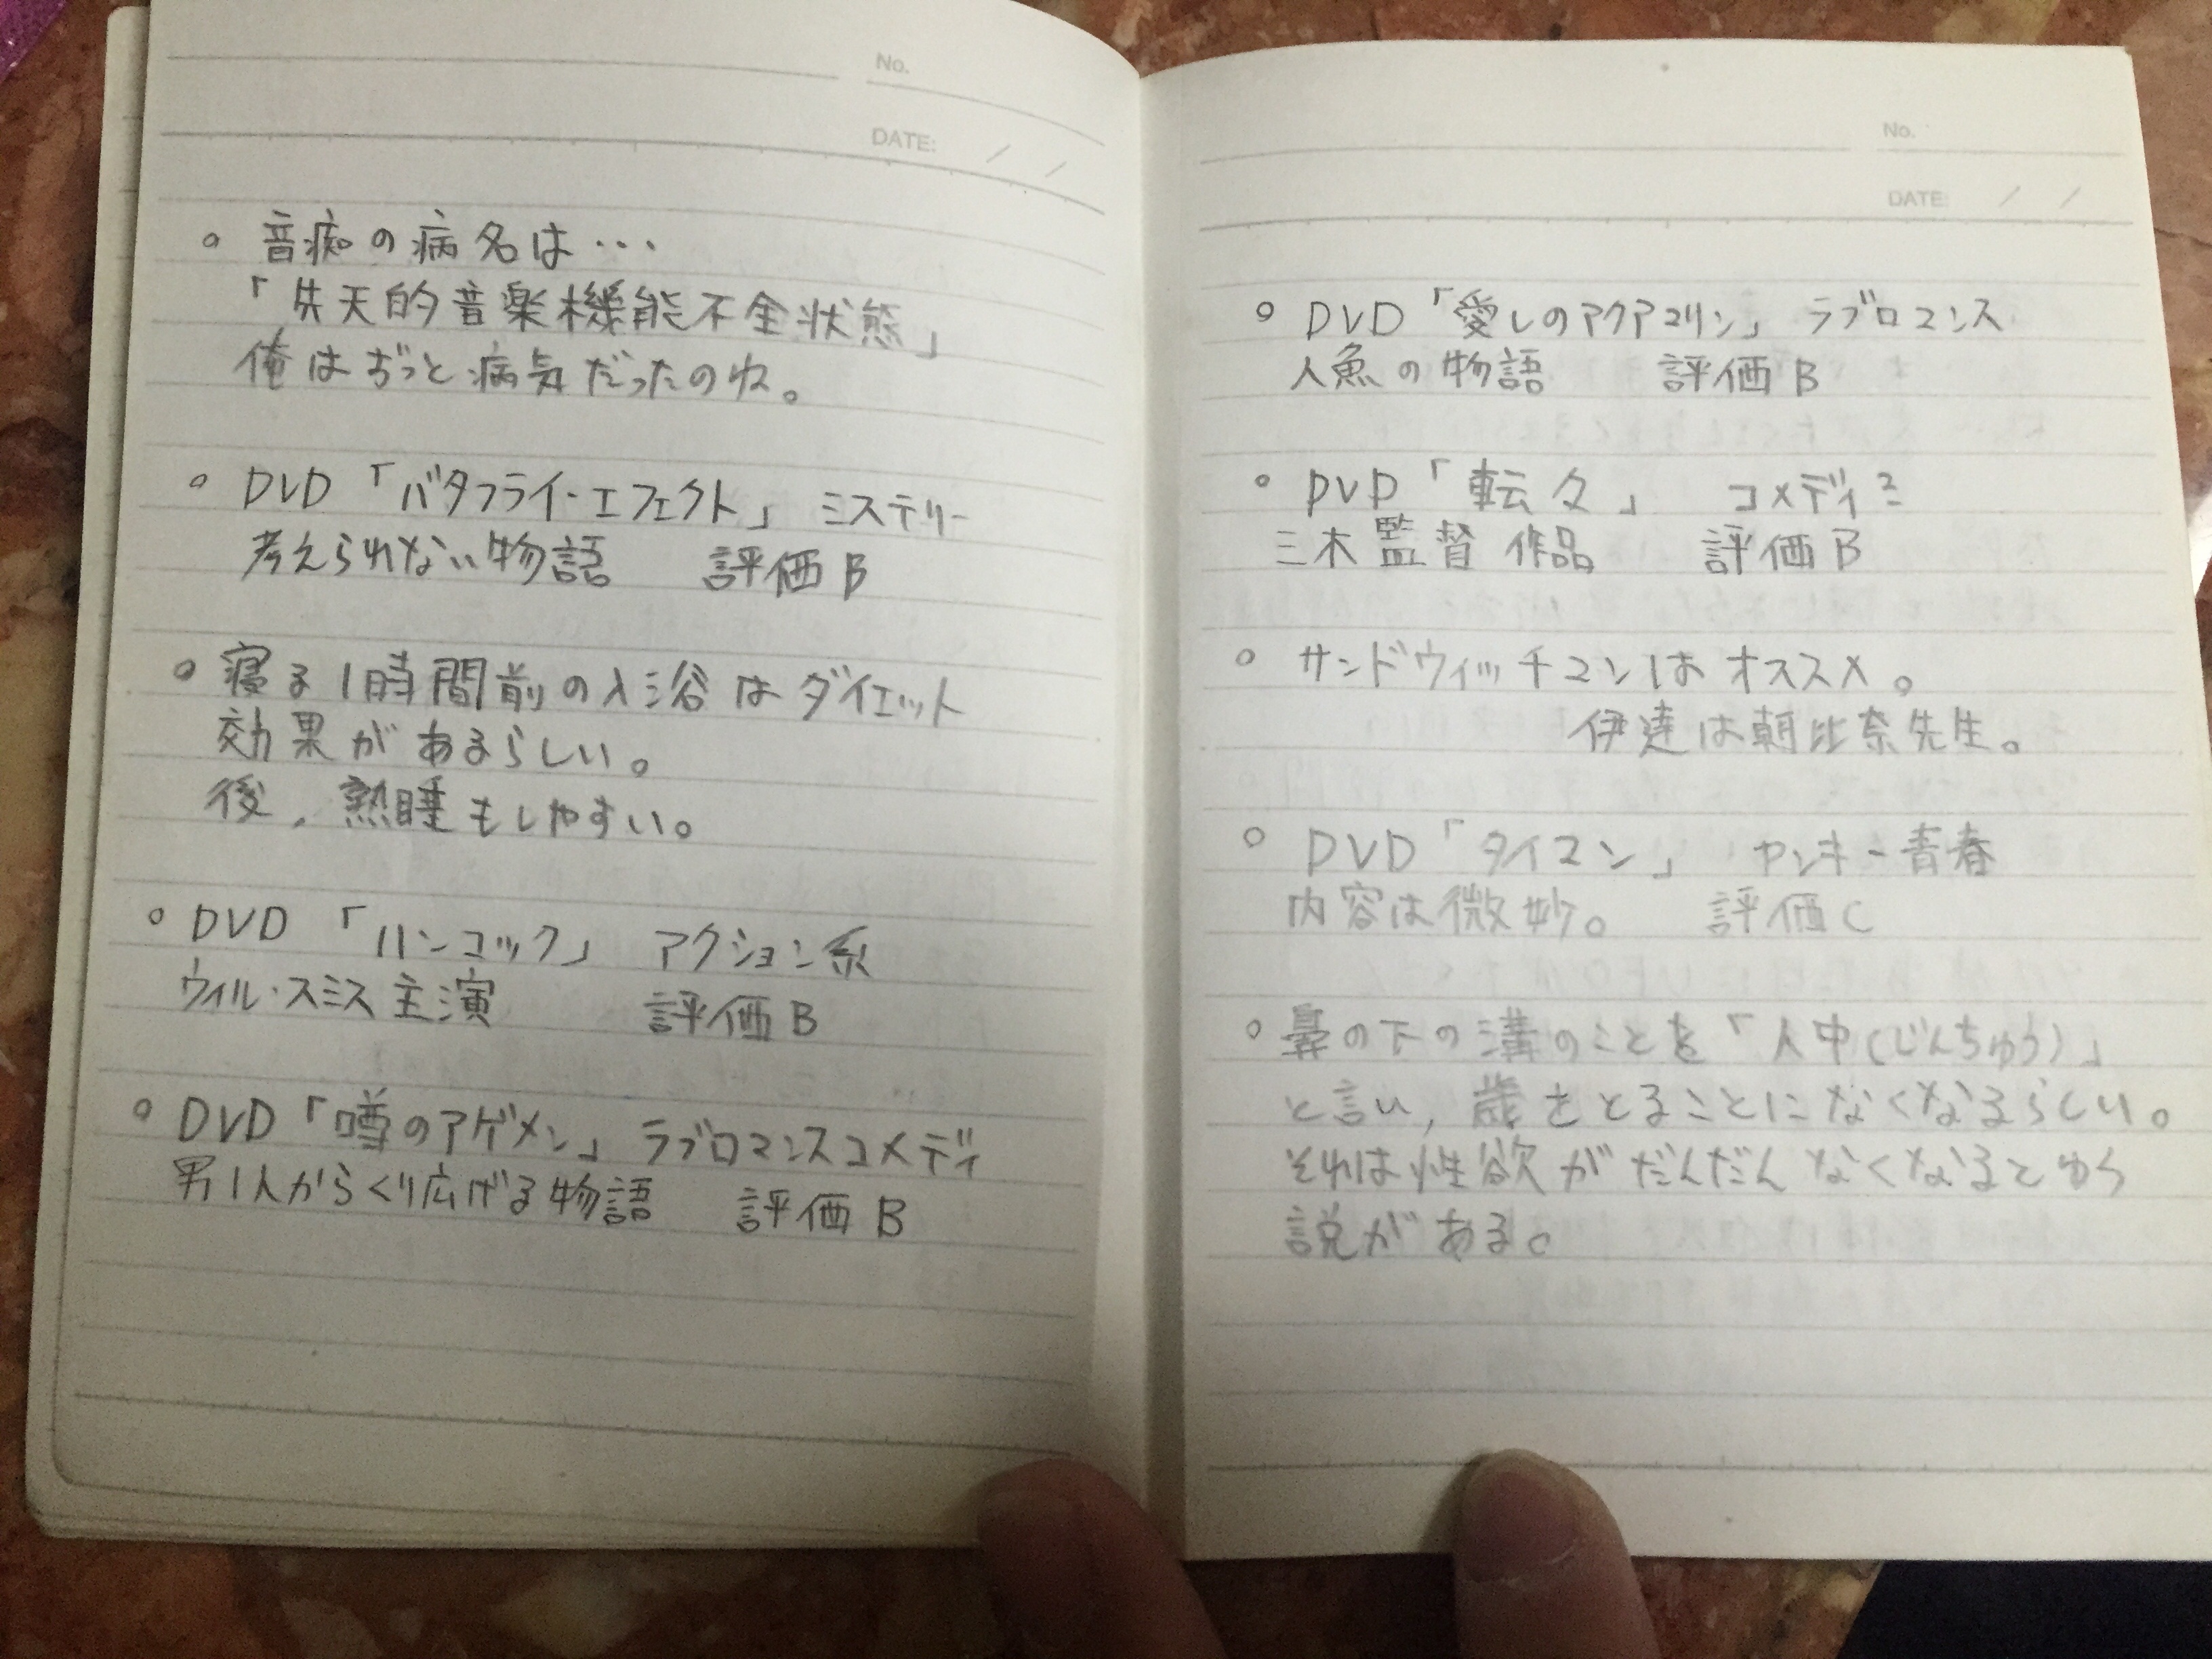 No.
DATE: / /
○ 音痴の病名は…
「先天的音楽機能不全状態」
俺はずっと病気だったのね。
○ DVD「バタフライ・エフェクト」 ミステリー
考えられない物語 評価B
○ 寝る1時間前の入浴はダイエット
効果があるらしい。
後,熟睡もしやすい。
○ DVD 「ハンコック」 アクション系
ウィル・スミス主演 評価B
○ DVD「噂のアゲメン」ラブロマンスコメディ
男1人からくり広げる物語 評価B
No.
DATE: / /
○ DVD「愛しのアクアマリン」 ラブロマンス
人魚の物語 評価B
○ DVD「転々」 コメディ
三木監督作品 評価B
○ サンドウィッチマンはオススメ。
伊達は朝比奈先生。
○ DVD「タイマン」 ヤンキー青春
内容は微妙。 評価C
○ 鼻の下の溝のことを「人中(じんちゅう)」
と言い,歳をとることになくなるらしい。
それは性欲がだんだんなくなるとゆう
説がある。